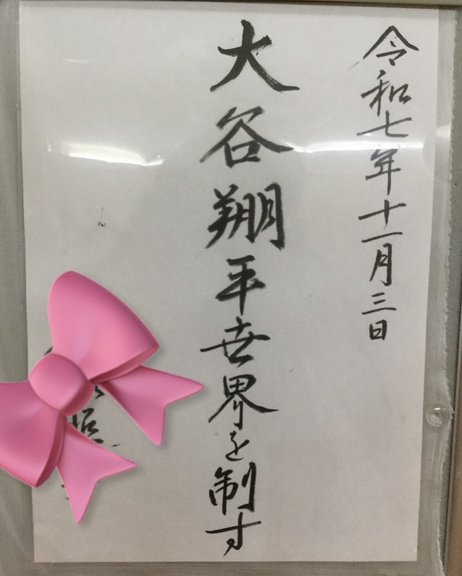 令和七年十一月三日
大谷翔平世界を制す